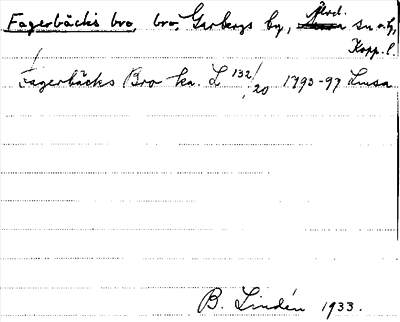 Fagerbäcks bro, bro, Garbergs by, Älvd. sn o. tg,
Kopp. l.
Fagerbäcks Bro ka. L 132/20 1793-97 Lmsa
B. Lindén 1933.